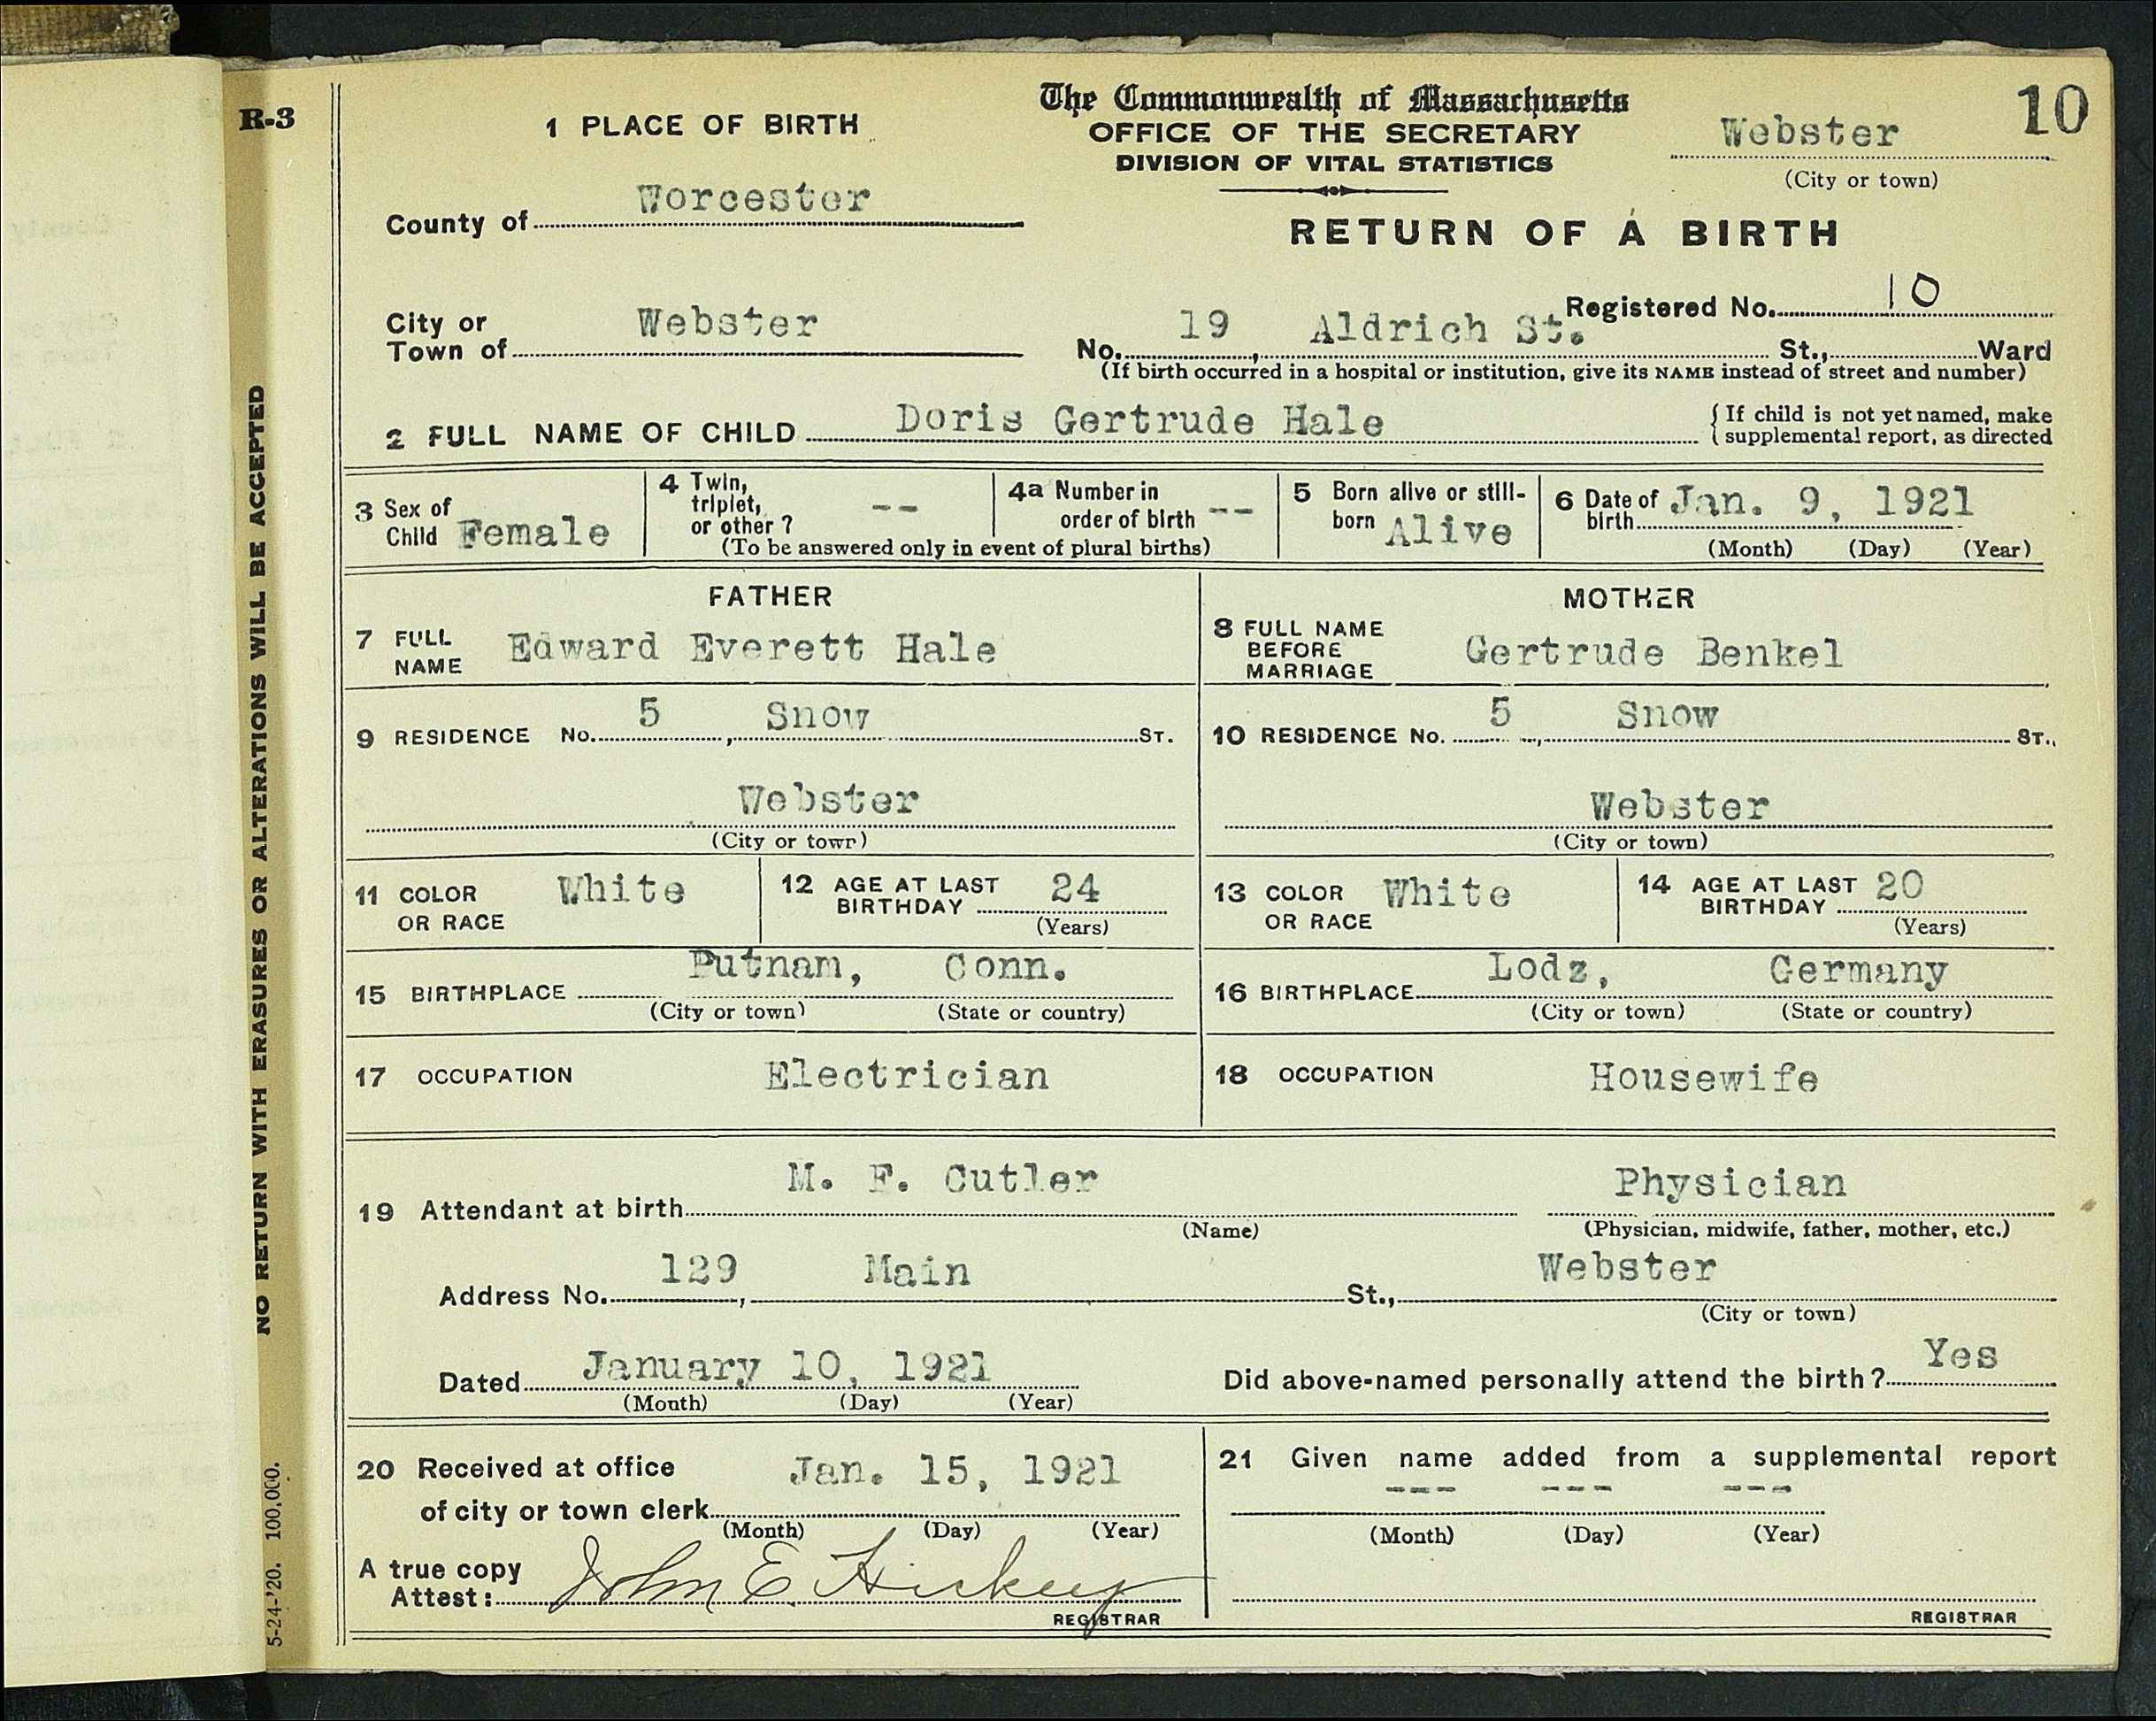 R-3
1 PLACE OF BIRTH
The Commonwealth of Massachusetts
OFFICE OF THE SECRETARY
DIVISION OF VITAL STATISTICS
Webster
(City or town)
10
County of Worcester
RETURN OF A BIRTH
Registered No. 10
City or
Town of Webster
No. 19, Aldrich St. St., Ward
(If birth occurred in a hospital or institution, give its NAME instead of street and number)
2 FULL NAME OF CHILD Doris Gertrude Hale
{ If child is not yet named, make
supplemental report, as directed
3 Sex of
Child Female
4 Twin,
triplet,
or other ? --
4a Number in
order of birth --
(To be answered only in event of plural births)
5 Born alive or still-
born Alive
6 Date of
birth Jan. 9, 1921
(Month) (Day) (Year)
FATHER
7 FULL
NAME Edward Everett Hale
MOTHER
8 FULL NAME
BEFORE
MARRIAGE Gertrude Benkel
9 RESIDENCE No. 5, Snow ST.
Webster
(City or town)
10 RESIDENCE No. 5, Snow ST.,
Webster
(City or town)
11 COLOR
OR RACE White
12 AGE AT LAST
BIRTHDAY 24
(Years)
13 COLOR
OR RACE White
14 AGE AT LAST
BIRTHDAY 20
(Years)
15 BIRTHPLACE Putnam, Conn.
(City or town) (State or country)
16 BIRTHPLACE Lodz, Germany
(City or town) (State or country)
17 OCCUPATION Electrician
18 OCCUPATION Housewife
19 Attendant at birth M. F. Cutler Physician
(Name) (Physician, midwife, father, mother, etc.)
Address No. 129, Main St., Webster
(City or town)
Dated January 10, 1921
(Month) (Day) (Year)
Did above-named personally attend the birth? Yes
20 Received at office
of city or town clerk Jan. 15, 1921
(Month) (Day) (Year)
A true copy
Attest: John E. Hickey
REGISTRAR
21 Given name added from a supplemental report
--- --- ---
(Month) (Day) (Year)
REGISTRAR
NO RETURN WITH ERASURES OR ALTERATIONS WILL BE ACCEPTED
5-24-'20. 100,000.